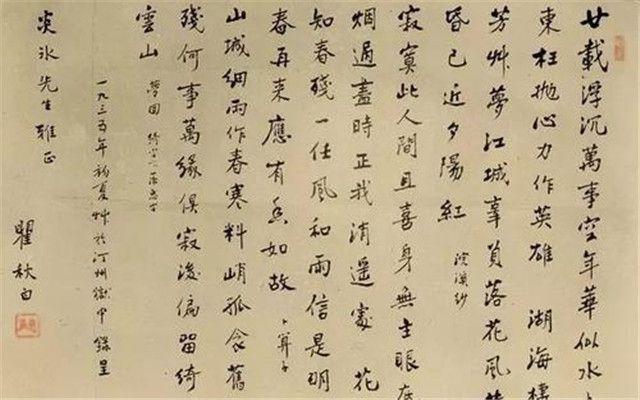 廿載浮沉萬事空年華似水
東枉抛心力作英雄 湖海棲
芳艸夢江城辜負落花風
昏已近夕陽紅 浣溪紗
寂寞此人間且喜身無主眼底
烟過盡時正我消遥處 花
知春殘一任風和雨信是明
春再來應有香如故 卜算子
山城細雨作春寒料峭孤衾舊
殘何事萬緣俱寂後偏留綺
雲山 夢回
一九三五年初夏艸於汀州獄中錄呈
炎冰先生雅正
瞿秋白